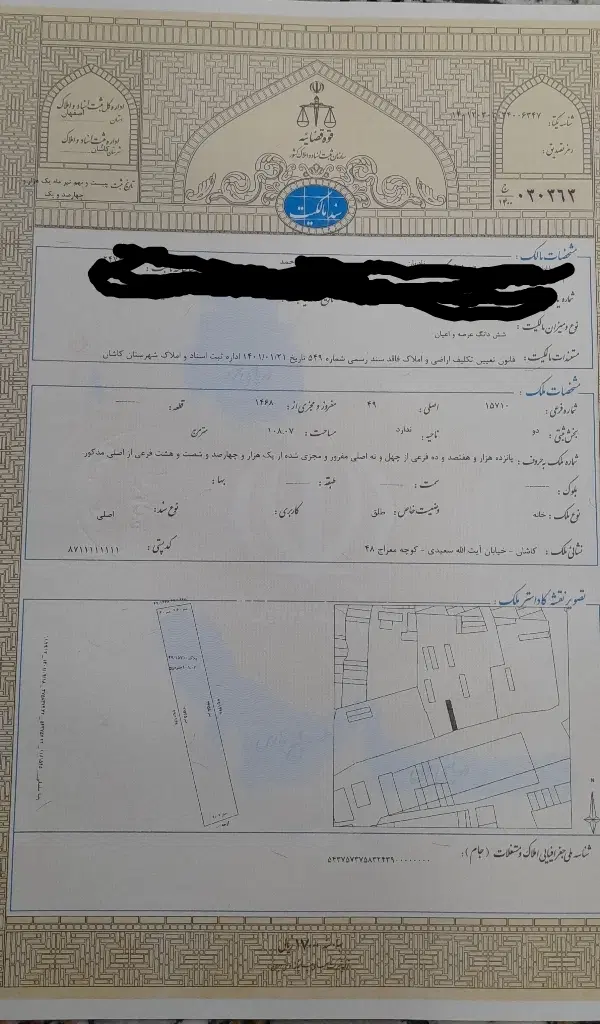 اداره کل ثبت اسناد و املاک
استان اصفهان
اداره ثبت اسناد و املاک
شهرستان کاشان
تاریخ ثبت بیست و نهم تیر ماه یک هزار و
چهارصد و یک
قوه قضائیه
سازمان ثبت اسناد و املاک کشور
سند مالکیت
شناسه یکتا:
دفتر تصدیق:
ج
۱۴۰۰
۰۳۰۳۶۳
مشخصات مالک:
شماره
نوع و میزان مالکیت: شش دانگ عرصه و اعیان
مستندات مالکیت: قانون تعیین تکلیف اراضی و املاک فاقد سند رسمی شماره ۵۴۹ تاریخ ۱۴۰۱/۰۱/۲۱ اداره ثبت اسناد و املاک شهرستان کاشان
مشخصات ملک:
شماره فرعی: ۱۵۷۱۰ اصلی: ۴۹ مفروز و مجزی از: ۱۴۶۸ قطعه:
بخش ثبتی: دو ناحیه: ندارد مساحت: ۱۰۸.۰۷ مترمربع
شماره ملک به حروف: پانزده هزار و هفتصد و ده فرعی از چهل و نه اصلی مفروز و مجزی شده از یک هزار و چهارصد و شصت و هشت فرعی از اصلی مذکور
بلوک: سمت: طبقه: بها:
نوع ملک: خانه وضعیت خاص: طلق کاربری: نوع سند: اصلی
نشانی ملک: کاشان - خیابان آیت الله سعیدی - کوچه معراج ۴۸ کدپستی: ۸۷۱۱۱۱۱۱۱۱
تصویر نقشه کاداستر ملک:
N
شناسه ملی جغرافیایی املاک و مستغلات (جام):